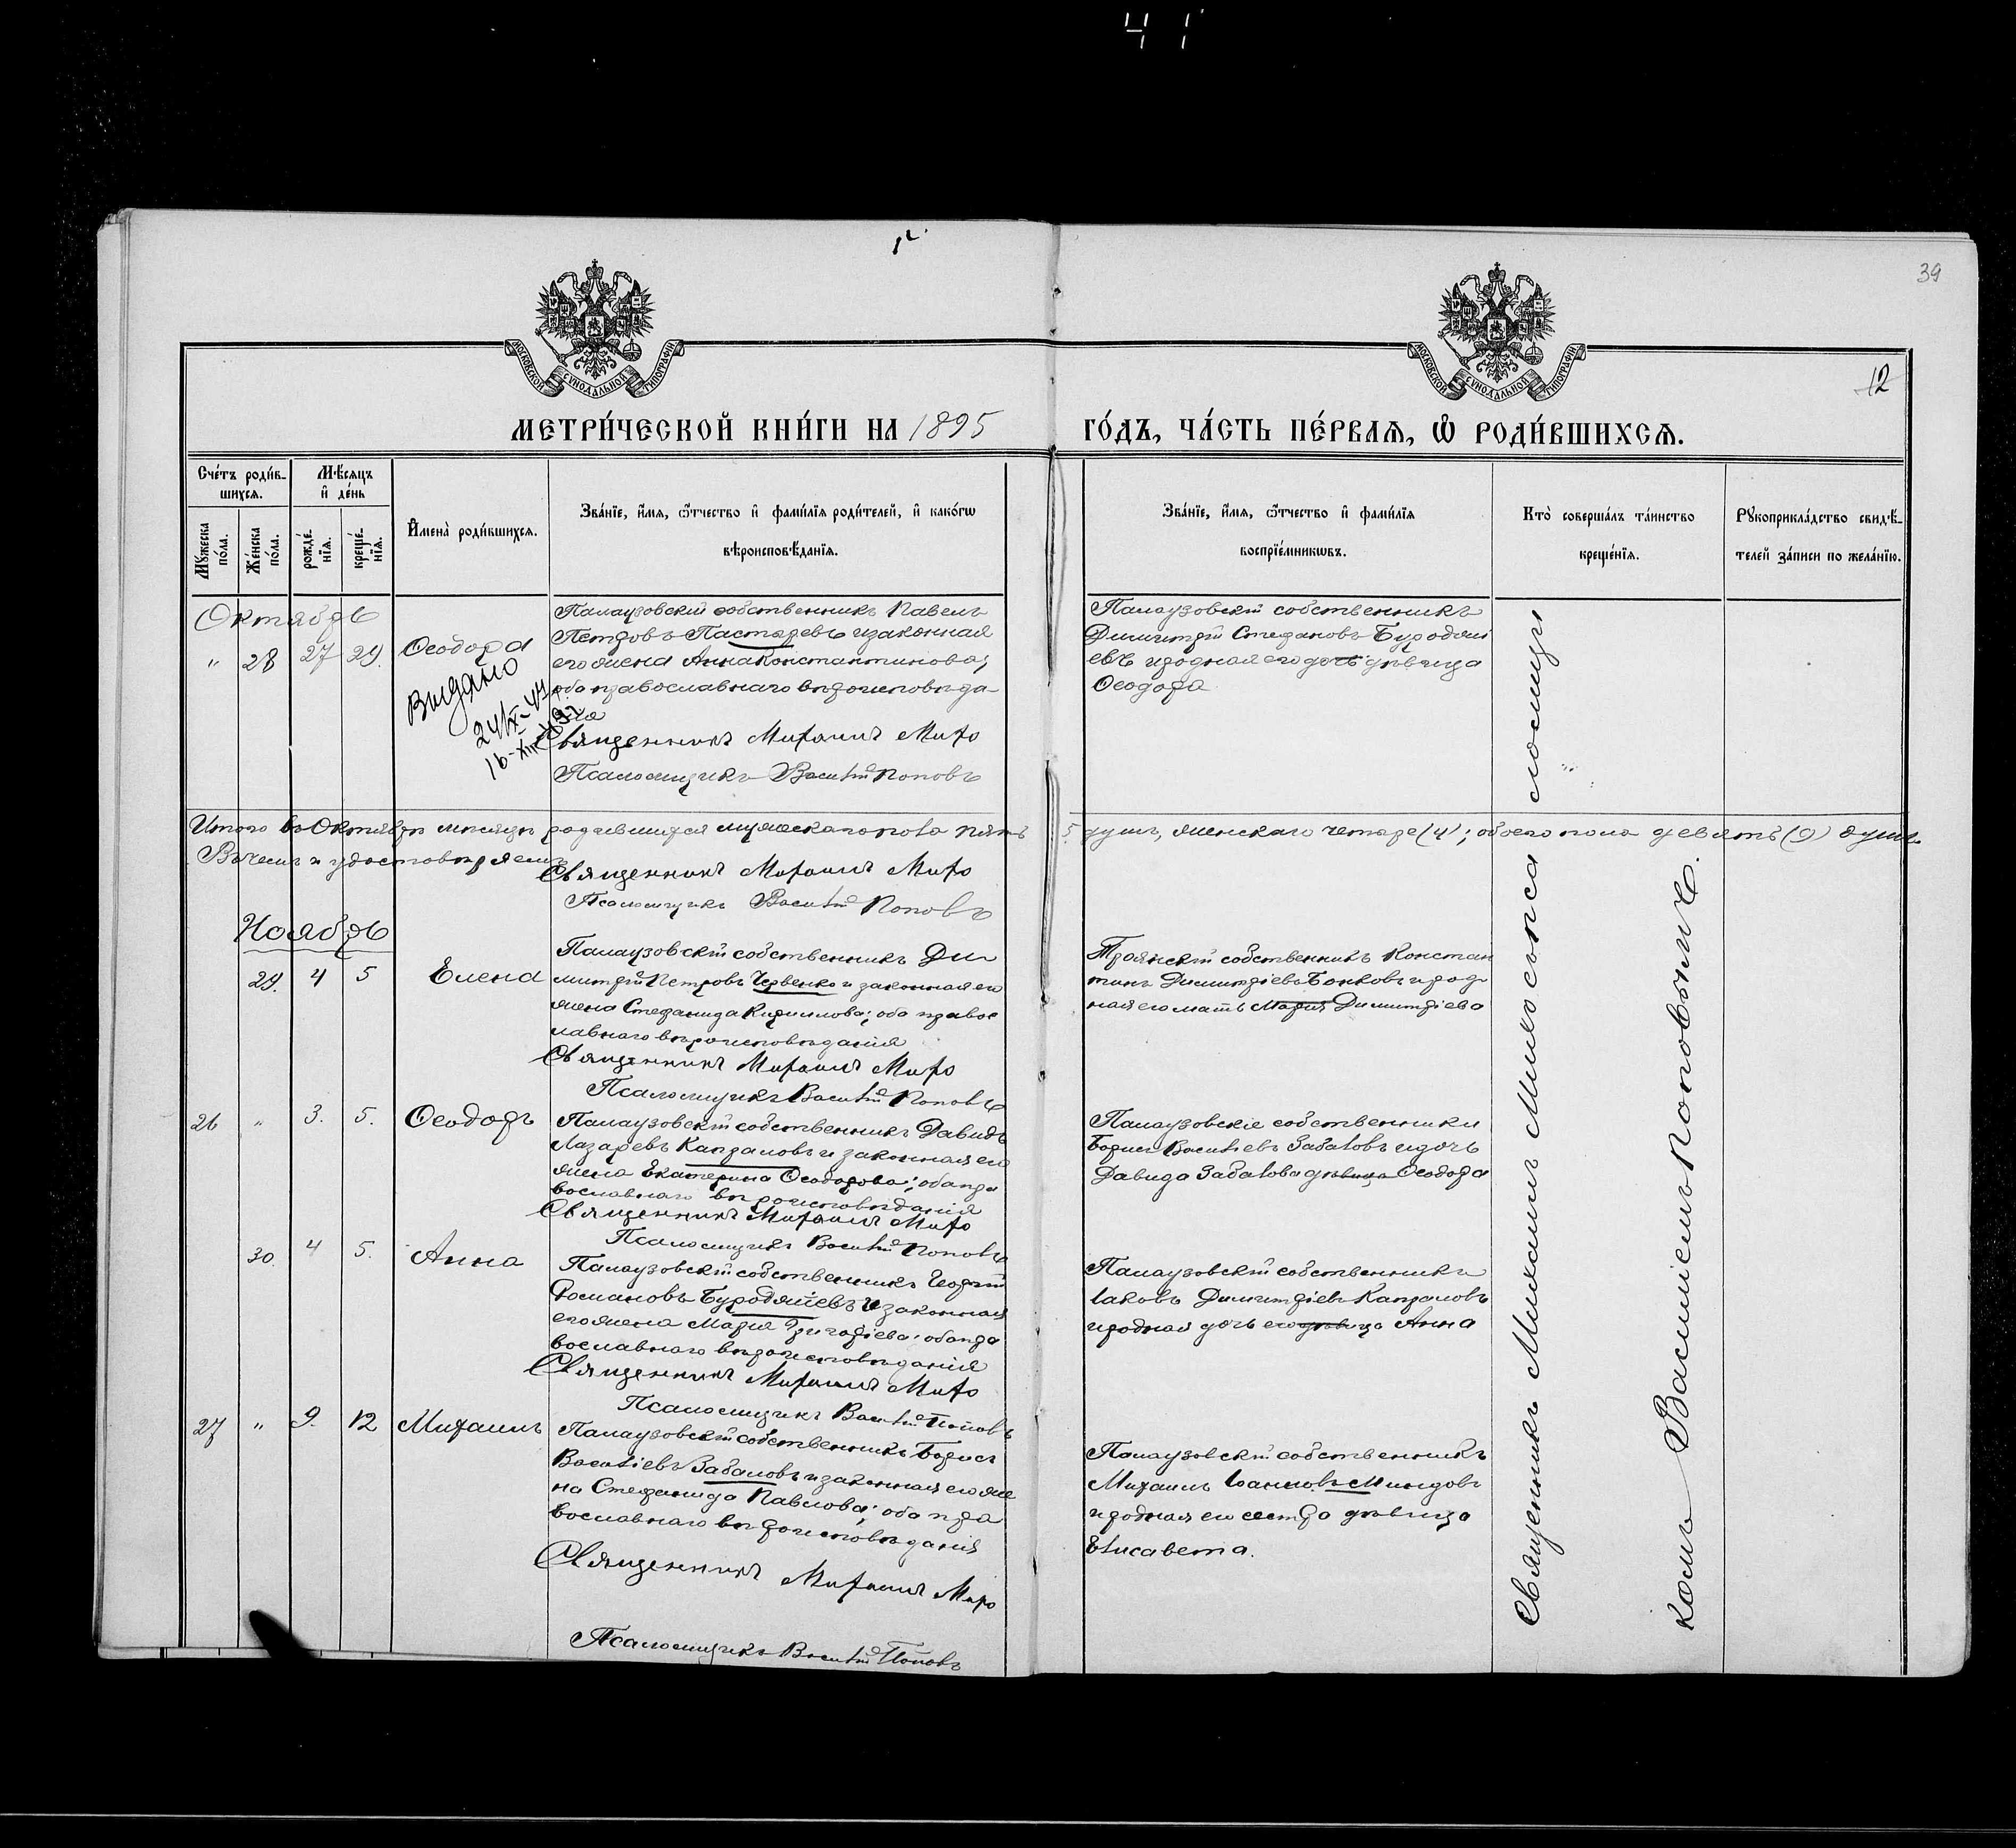 41
39
12
МОСКОВСКОЙ СѴНОДАЛЬНОЙ ТИПОГРАФІИ
МОСКОВСКОЙ СѴНОДАЛЬНОЙ ТИПОГРАФІИ
МЕТРИ́ЧЕСКОЙ КНИ́ГИ НА 1895
ГО́ДЪ, ЧА́СТЬ ПЕ́РВАѦ, Ѡ҆ РОДИ́ВШИХСѦ.
Сче́тъ роди́в-
шихсѧ.
Мѣ́сѧцъ
и҆ де́нь
Мꙋ́жеска
по́ла.
Же́нска
по́ла.
рожде́-
нїѧ.
креще́-
нїѧ.
И҆мена̀ роди́вшихсѧ.
Зва́нїе, и҆́мѧ, ѻ҆́тчество и҆ фами́лїѧ роди́телей, и҆ како́гѡ
вѣроисповѣ́данїѧ.
Зва́нїе, и҆́мѧ, ѻ҆́тчество и҆ фами́лїѧ
воспрїе́мникѡвъ.
Кто̀ соверша́лъ та́инство
креще́нїѧ.
Рꙋкоприкла́дство свидѣ́-
телей за́писи по жела́нїю.
Октябрь
" 28 27 29. Ѳеодора
Выдано
Палаузовскій собственникъ Павелъ
Петровъ Пастыревъ и законная
его жена Анна Константинова;
оба православнаго вѣроисповѣда-
нія
Священникъ Михаилъ
Псаломщикъ Василій Поповъ
Палаузовскій собственникъ
Димитрій Стефановъ Буроджи
евъ и родная его дочь дѣвица
Ѳеодора
Итого въ Октябрѣ мѣсяцѣ родившихся мужескаго пола пять 5 душъ, женскаго четыре (4); обоего пола девять (9) душъ.
удостовѣряемъ
Священникъ Михаилъ
Псаломщикъ Василій Поповъ
Ноябрь
29. 4 5 Елена
Палаузовскій собственникъ Ди
митрій Петровъ Червенко и законная его
жена Стефанида Кириллова; оба право
славнаго вѣроисповѣданія
Священникъ Михаилъ
Псаломщикъ Василій Поповъ
Троянскій собственникъ Констан
тинъ Димитріевъ Бонковъ и род
ная его мать Марія Димитріева
26 " 3. 5. Ѳеодоръ
Палаузовскій собственникъ Давидъ
Лазаревъ Капзамовъ и законная его
жена Екатерина Ѳеодорова; оба пра
вославнаго вѣроисповѣданія
Священникъ Михаилъ
Псаломщикъ Василій Поповъ
Палаузовскіе собственники
Борисъ Василіевъ Забаловъ и дочь
Давида Забалова дѣвица Ѳеодора
30. 4 5. Анна
Палаузовскій собственникъ Георгій
Романовъ Буроджіевъ и законная
его жена Марія Григоріева; оба пра
вославнаго вѣроисповѣданія
Священникъ Михаилъ
Псаломщикъ Василій Поповъ
Палаузовскій собственникъ
Іаковъ Димитріевъ Капзамовъ
и родная дочь его дѣвица Анна
27 " 9. 12 Михаилъ
Палаузовскій собственникъ Борисъ
Василіевъ Забаловъ и законная его же
на Стефанида Павлова; оба пра
вославнаго вѣроисповѣданія
Священникъ Михаилъ
Псаломщикъ Василій Поповъ
Палаузовскій собственникъ
Михаилъ Іоанновъ Миндовъ
и родная его сестра дѣвица
Елисавета.
Священникъ Михаилъ съ псаломщи
комъ Василіемъ Поповымъ.